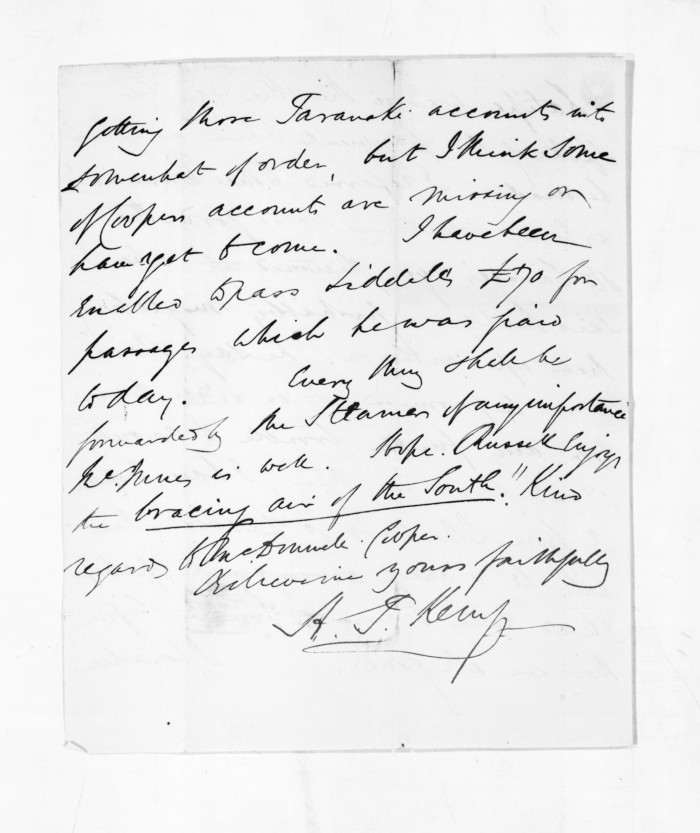 getting those Taranaki accounts into
somewhat of order, but I think some
of Coopers accounts are missing or
have yet to come. I have been
enabled to pass Liddells £70 for
passages which he was paid
today. Every thing shall be
forwarded by the Steamer of any importance
is well. Hope Russell enjoys
the bracing air of the South." Kind
regards to Cooper.
believe me yours faithfully
H. T. Kemp